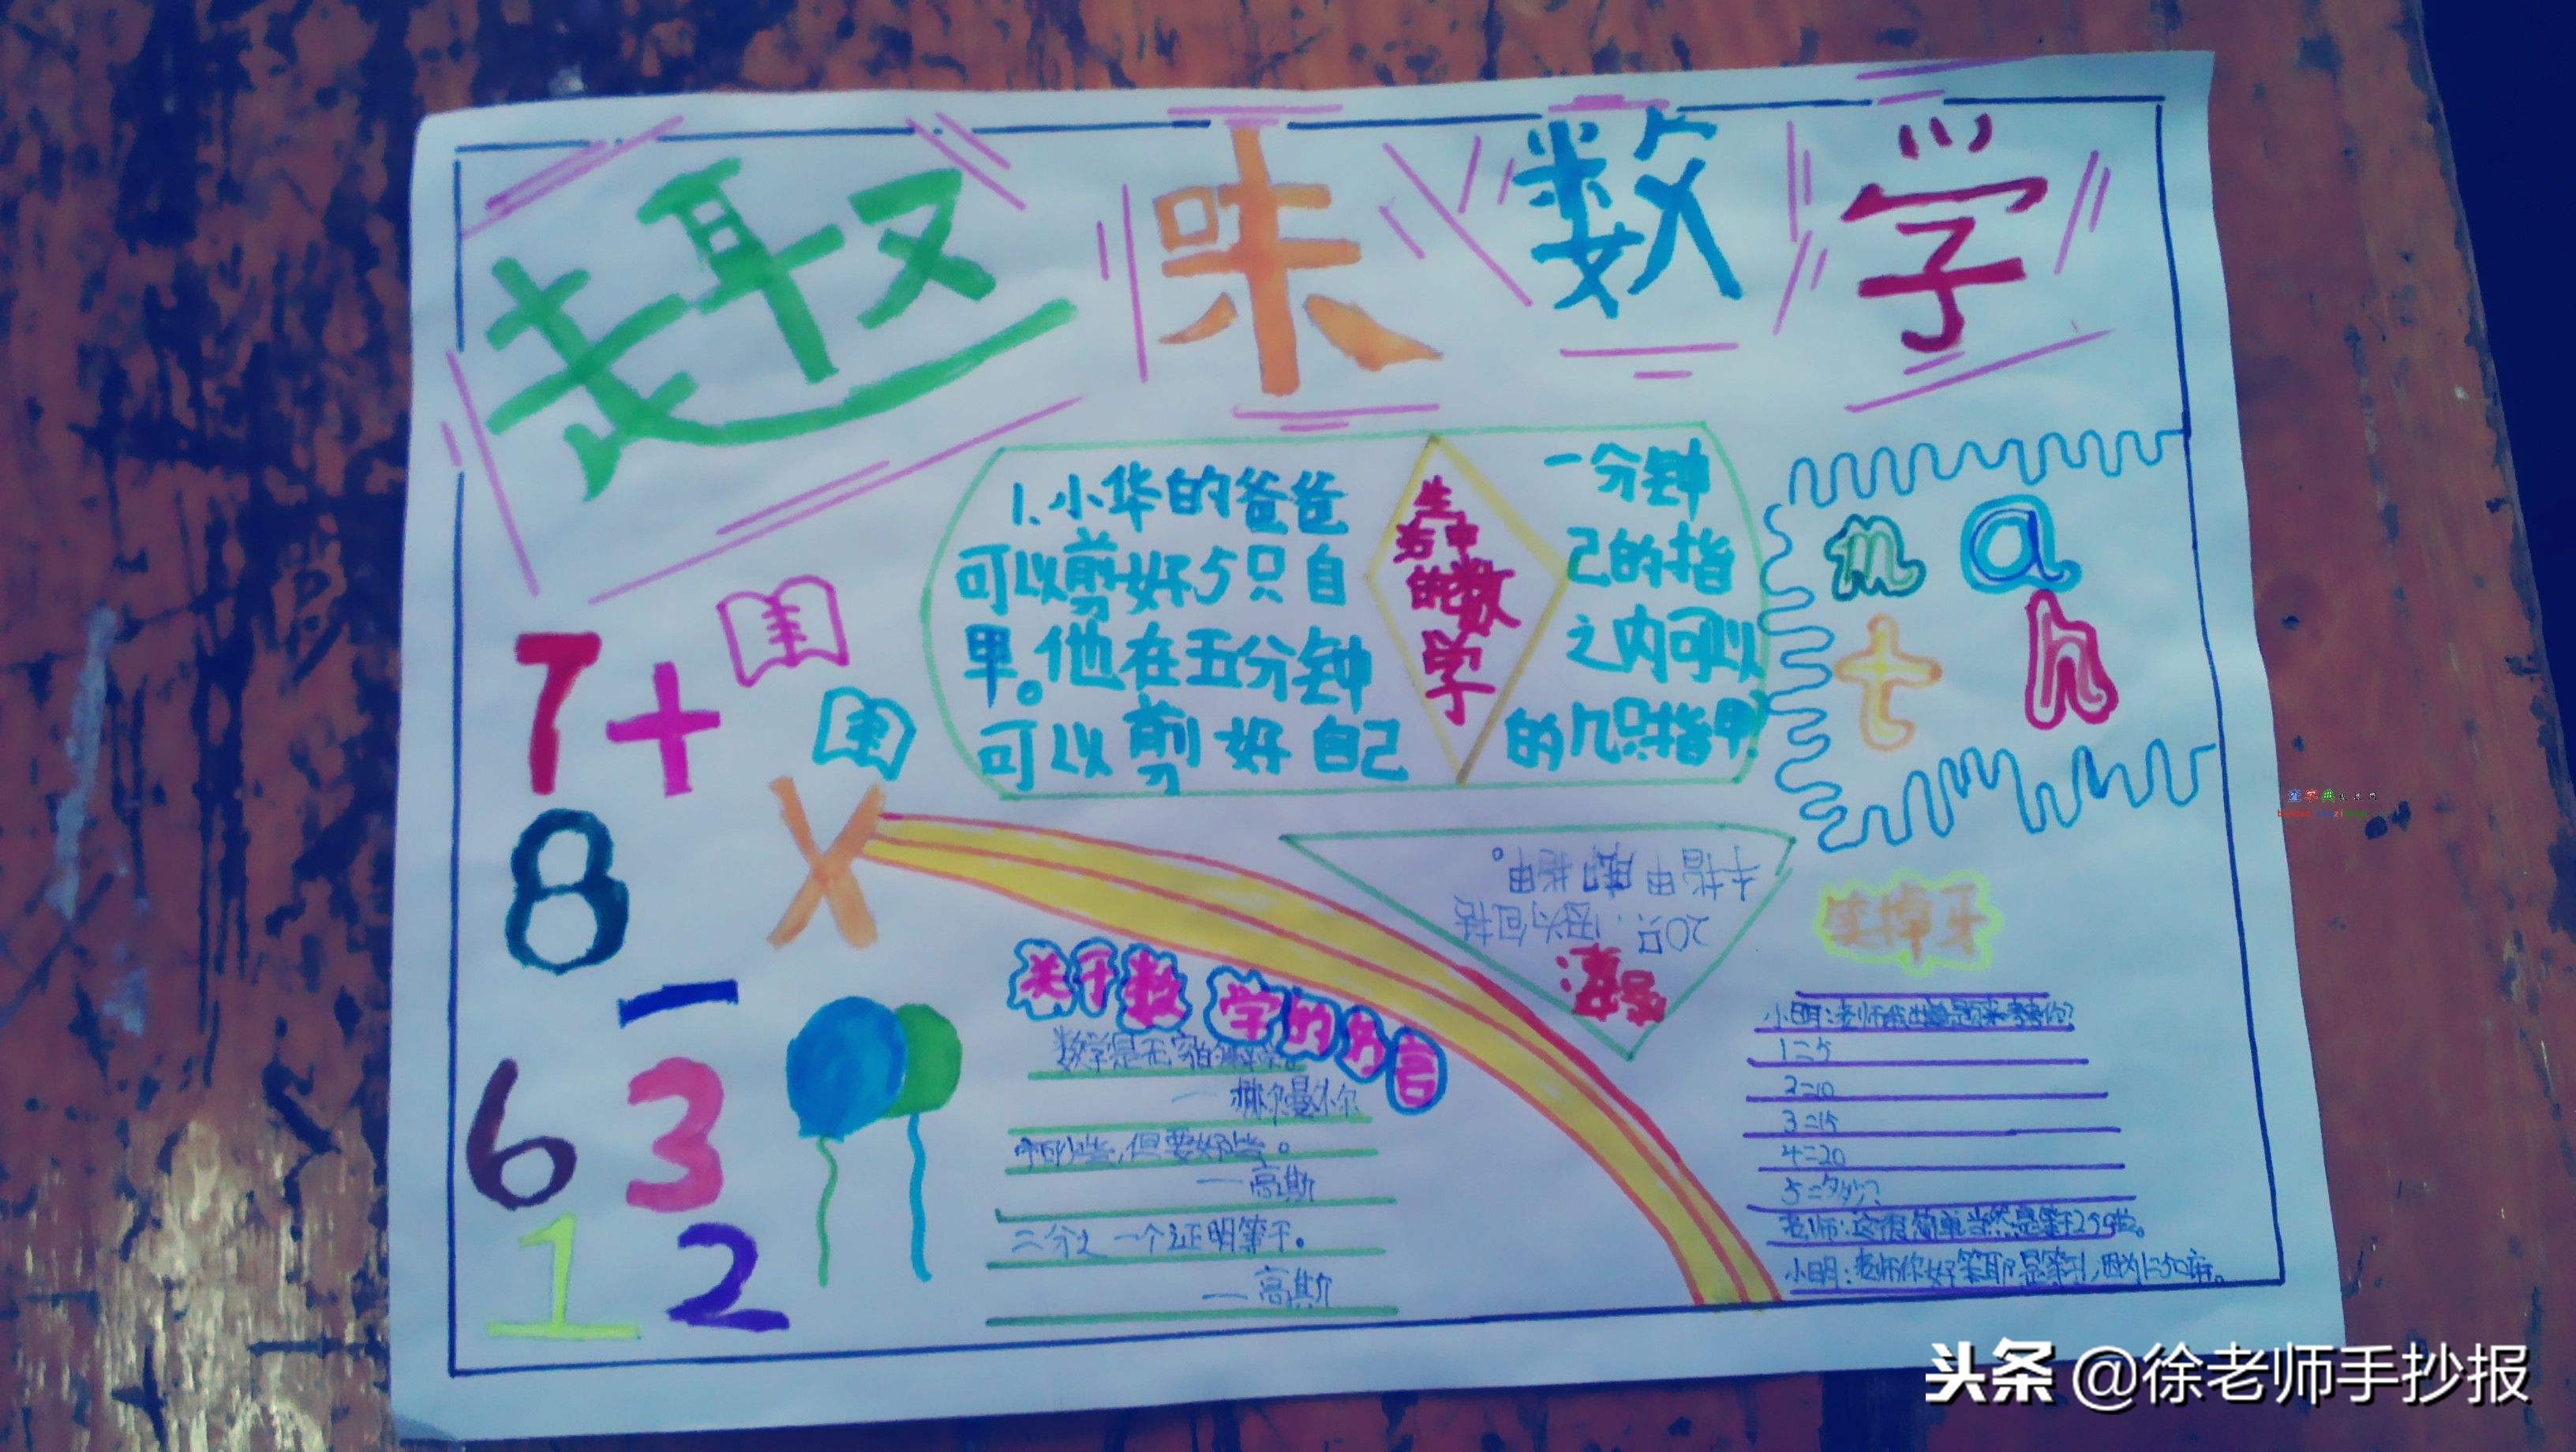 趣味数学
1.小华的爸爸 一分钟
可以剪好5只自 己的指
甲。他在五分钟 之内可以
可以剪好自己 的几只指甲?
生
活中
的数
学
m a
t h
7+
8 X
—
6 3
1 2
20只,因为包括
手指甲脚指甲。
笑掉牙
小明:老师我出题来考考你?
1=5
2=10
3=15
4=20
5=多少?
老师:这很简单当然是等于25啦。
小明:老师你好笨耶!是等于1,因为1=5
关于数学的名言
数学是无穷的科学。
—赫尔曼外尔
宁可少些,但要好些。
—高斯
二分之一个证明等于0。
—高斯
头条 @徐老师手抄报